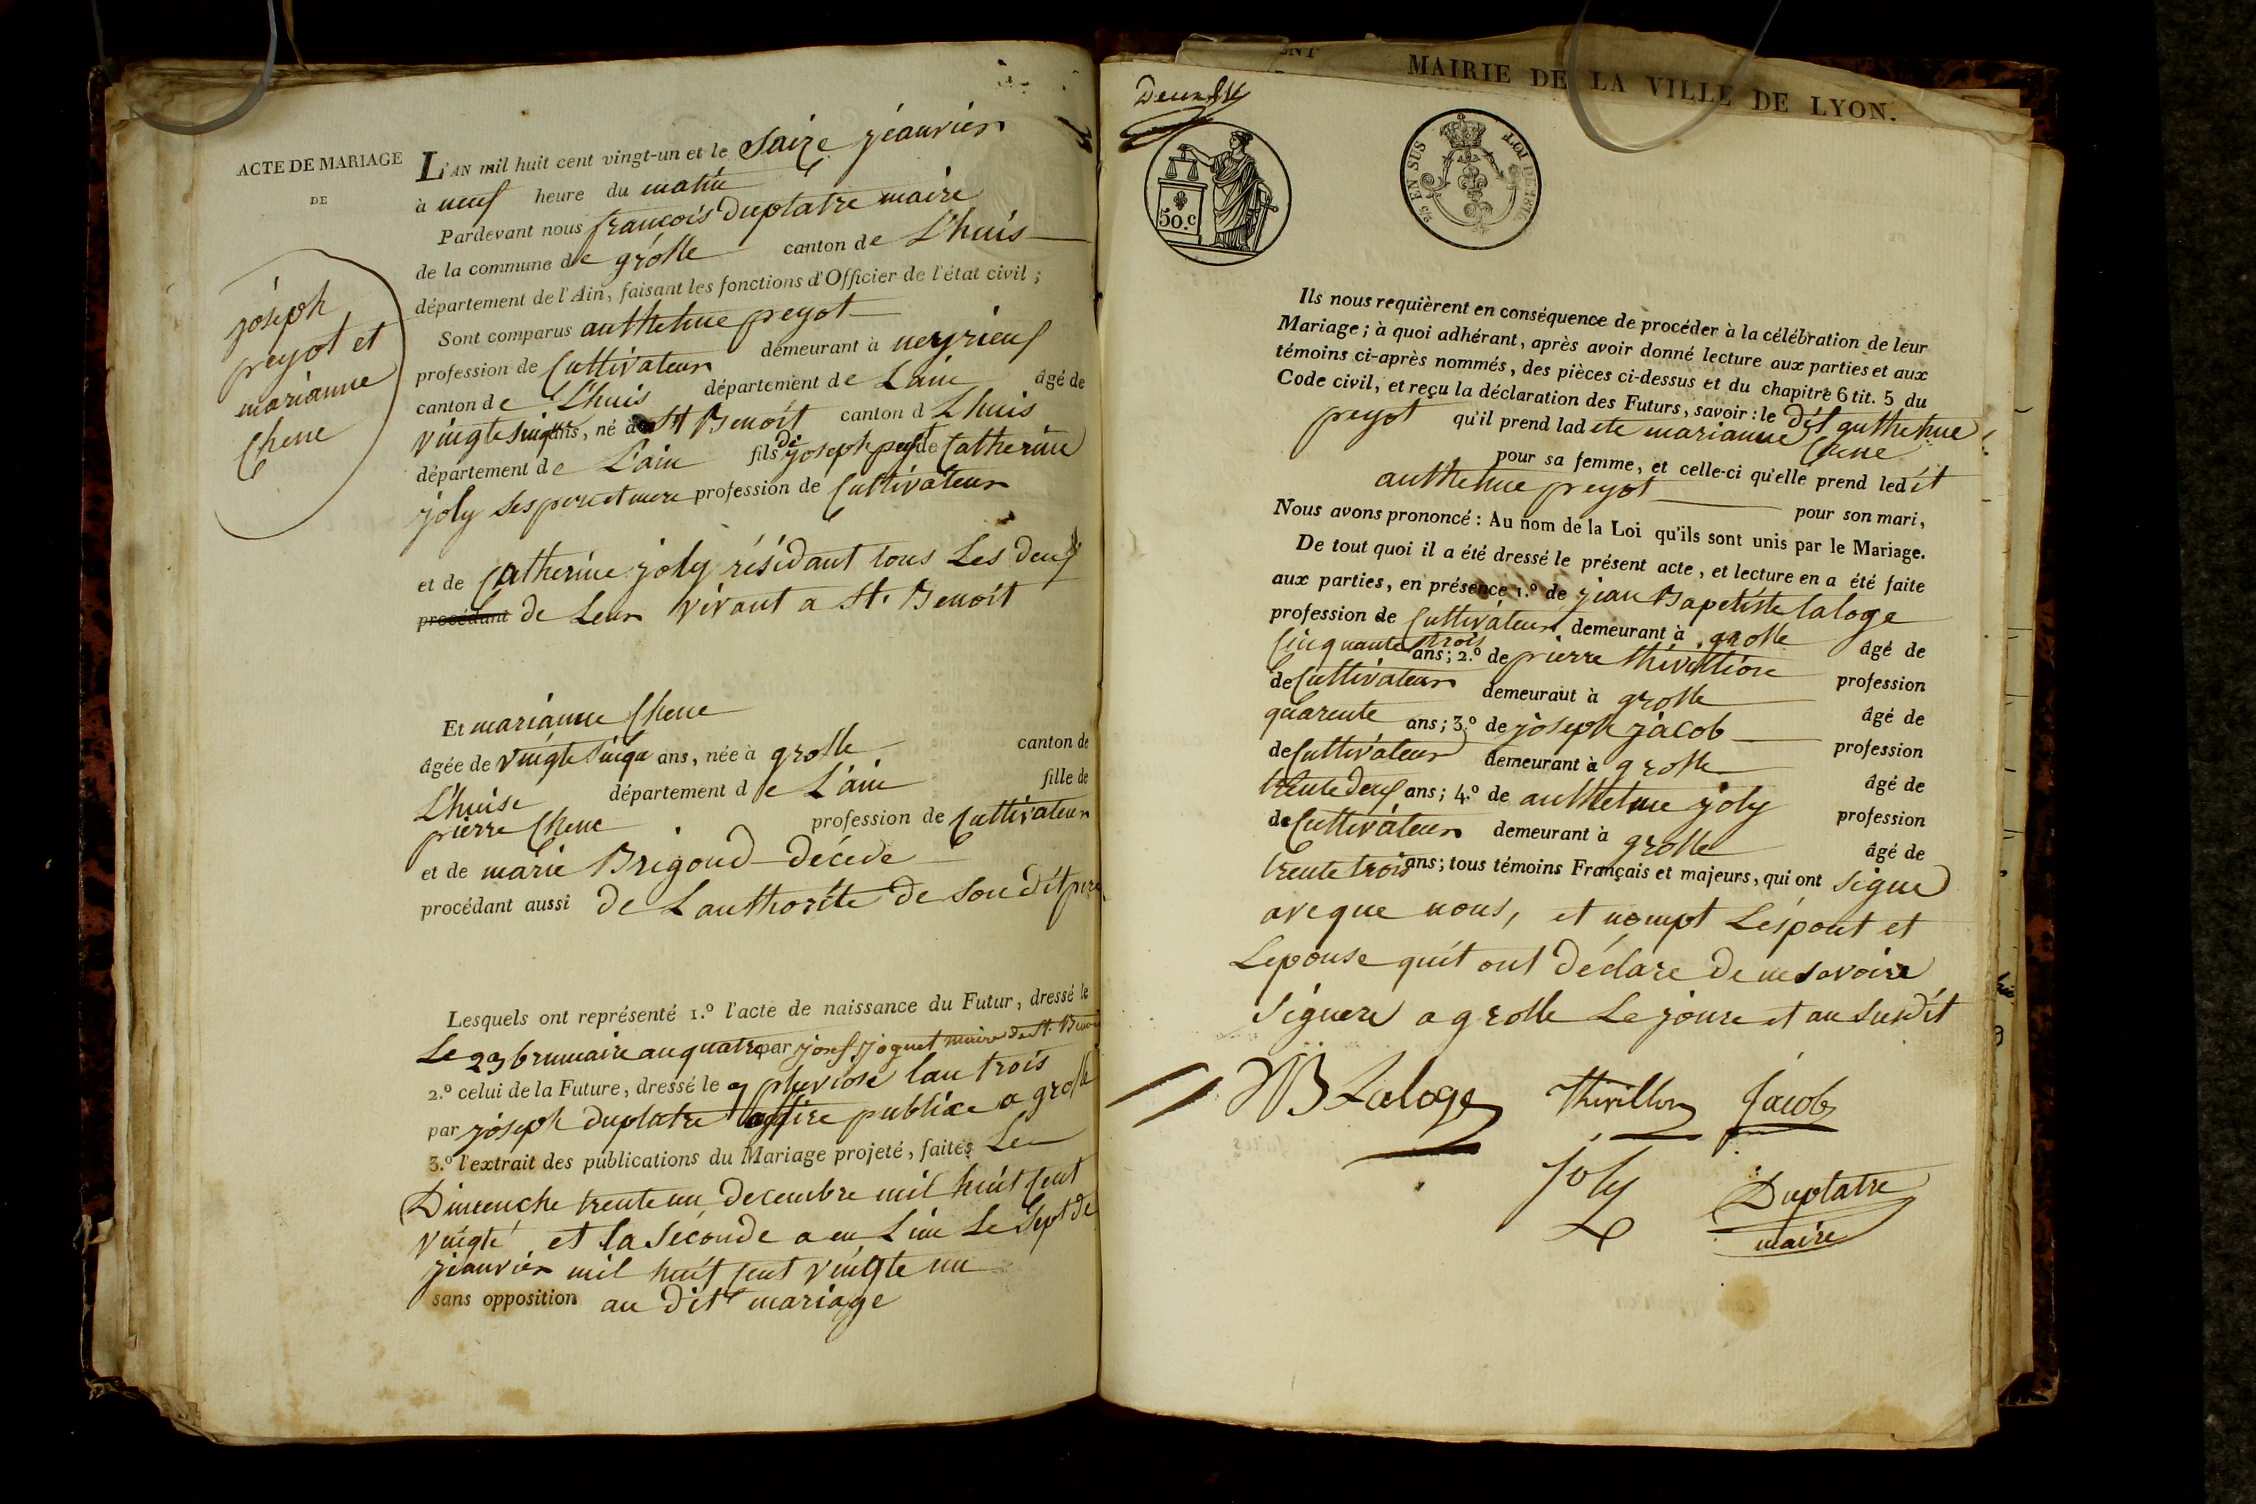 ACTE DE MARIAGE
DE
joseph
peyot et
marianne
Chene
L'AN mil huit cent vingt-un et le saize jéanvier
à neuf heure du matin
Pardevant nous francois Duplatre maire
de la commune de grolle canton de L'huis
département de l'Ain, faisant les fonctions d'Officier de l'état civil;
Sont comparus anthelme peyot
profession de Cultivateur demeurant à neyrieuf
canton de L'huis département de L'ain âgé de
vingte sinq ans, né a St Benoit canton d Lhuis
département de L'ain fils de joseph peyot de Catherine
joly ses pere et mere profession de Cultivateur
et de Catherine joly résidant tous Les deuf
procédant de Leur vivant a St. Benoit
Et marianne Chene
âgée de vingte sinqa ans, née à grolle canton de
L'huise département de L'ain fille de
pierre Chene profession de Cultivateur
et de marie Brigoud décéde
procédant aussi de Lauthorite de son dit pere
Lesquels ont représenté 1.º l'acte de naissance du Futur, dressé le
Le 23 brumaire an quatre par josef joguet maire de St. Benoit
2.º celui de la Future, dressé le 7 pluviose lan trois
par joseph Duplatre offire publice a grolle
3.º l'extrait des publications du Mariage projeté, faites Le
Dimenche trente un decembre mil huit cent
vingte et la séconde a eu Lieu Le sept de
jeanvier mil huit cent vingte un
sans opposition au dit mariage
ENT MAIRIE DE LA VILLE DE LYON.
50.C
25 EN SUS LOI DE 1816
Ils nous requièrent en conséquence de procéder à la célébration de leur
Mariage; à quoi adhérant, après avoir donné lecture aux parties et aux
témoins ci-après nommés, des pièces ci-dessus et du chapitre 6 tit. 5 du
Code civil, et reçu la déclaration des Futurs, savoir: le dit anthelme
peyot qu'il prend ladete marianne Chene
pour sa femme, et celle-ci qu'elle prend ledit
anthelme peyot pour son mari,
Nous avons prononcé: Au nom de la Loi qu'ils sont unis par le Mariage.
De tout quoi il a été dressé le présent acte, et lecture en a été faite
aux parties, en présence 1.º de jean Bapetiste laloge
profession de Cultivateur demeurant à grolle âgé de
Cinquante trois ans; 2.º de pierre thévillion profession
de Cultivateur demeurant à grolle âgé de
quarente ans; 3.º de joseph jacob profession
de Cultivateur demeurant à grolle âgé de
trente deuf ans; 4.º de anthelme joly profession
de Cultivateur demeurant à grolle âgé de
trente trois ans; tous témoins Français et majeurs, qui ont signe
aveque nous, et nompt Lespout et
Lepouse quit ont déclare de ne savoire
signere a grolle Le joure et an susdit
JB Laloge Thivillon Jacob
Joly Duplatre
maire